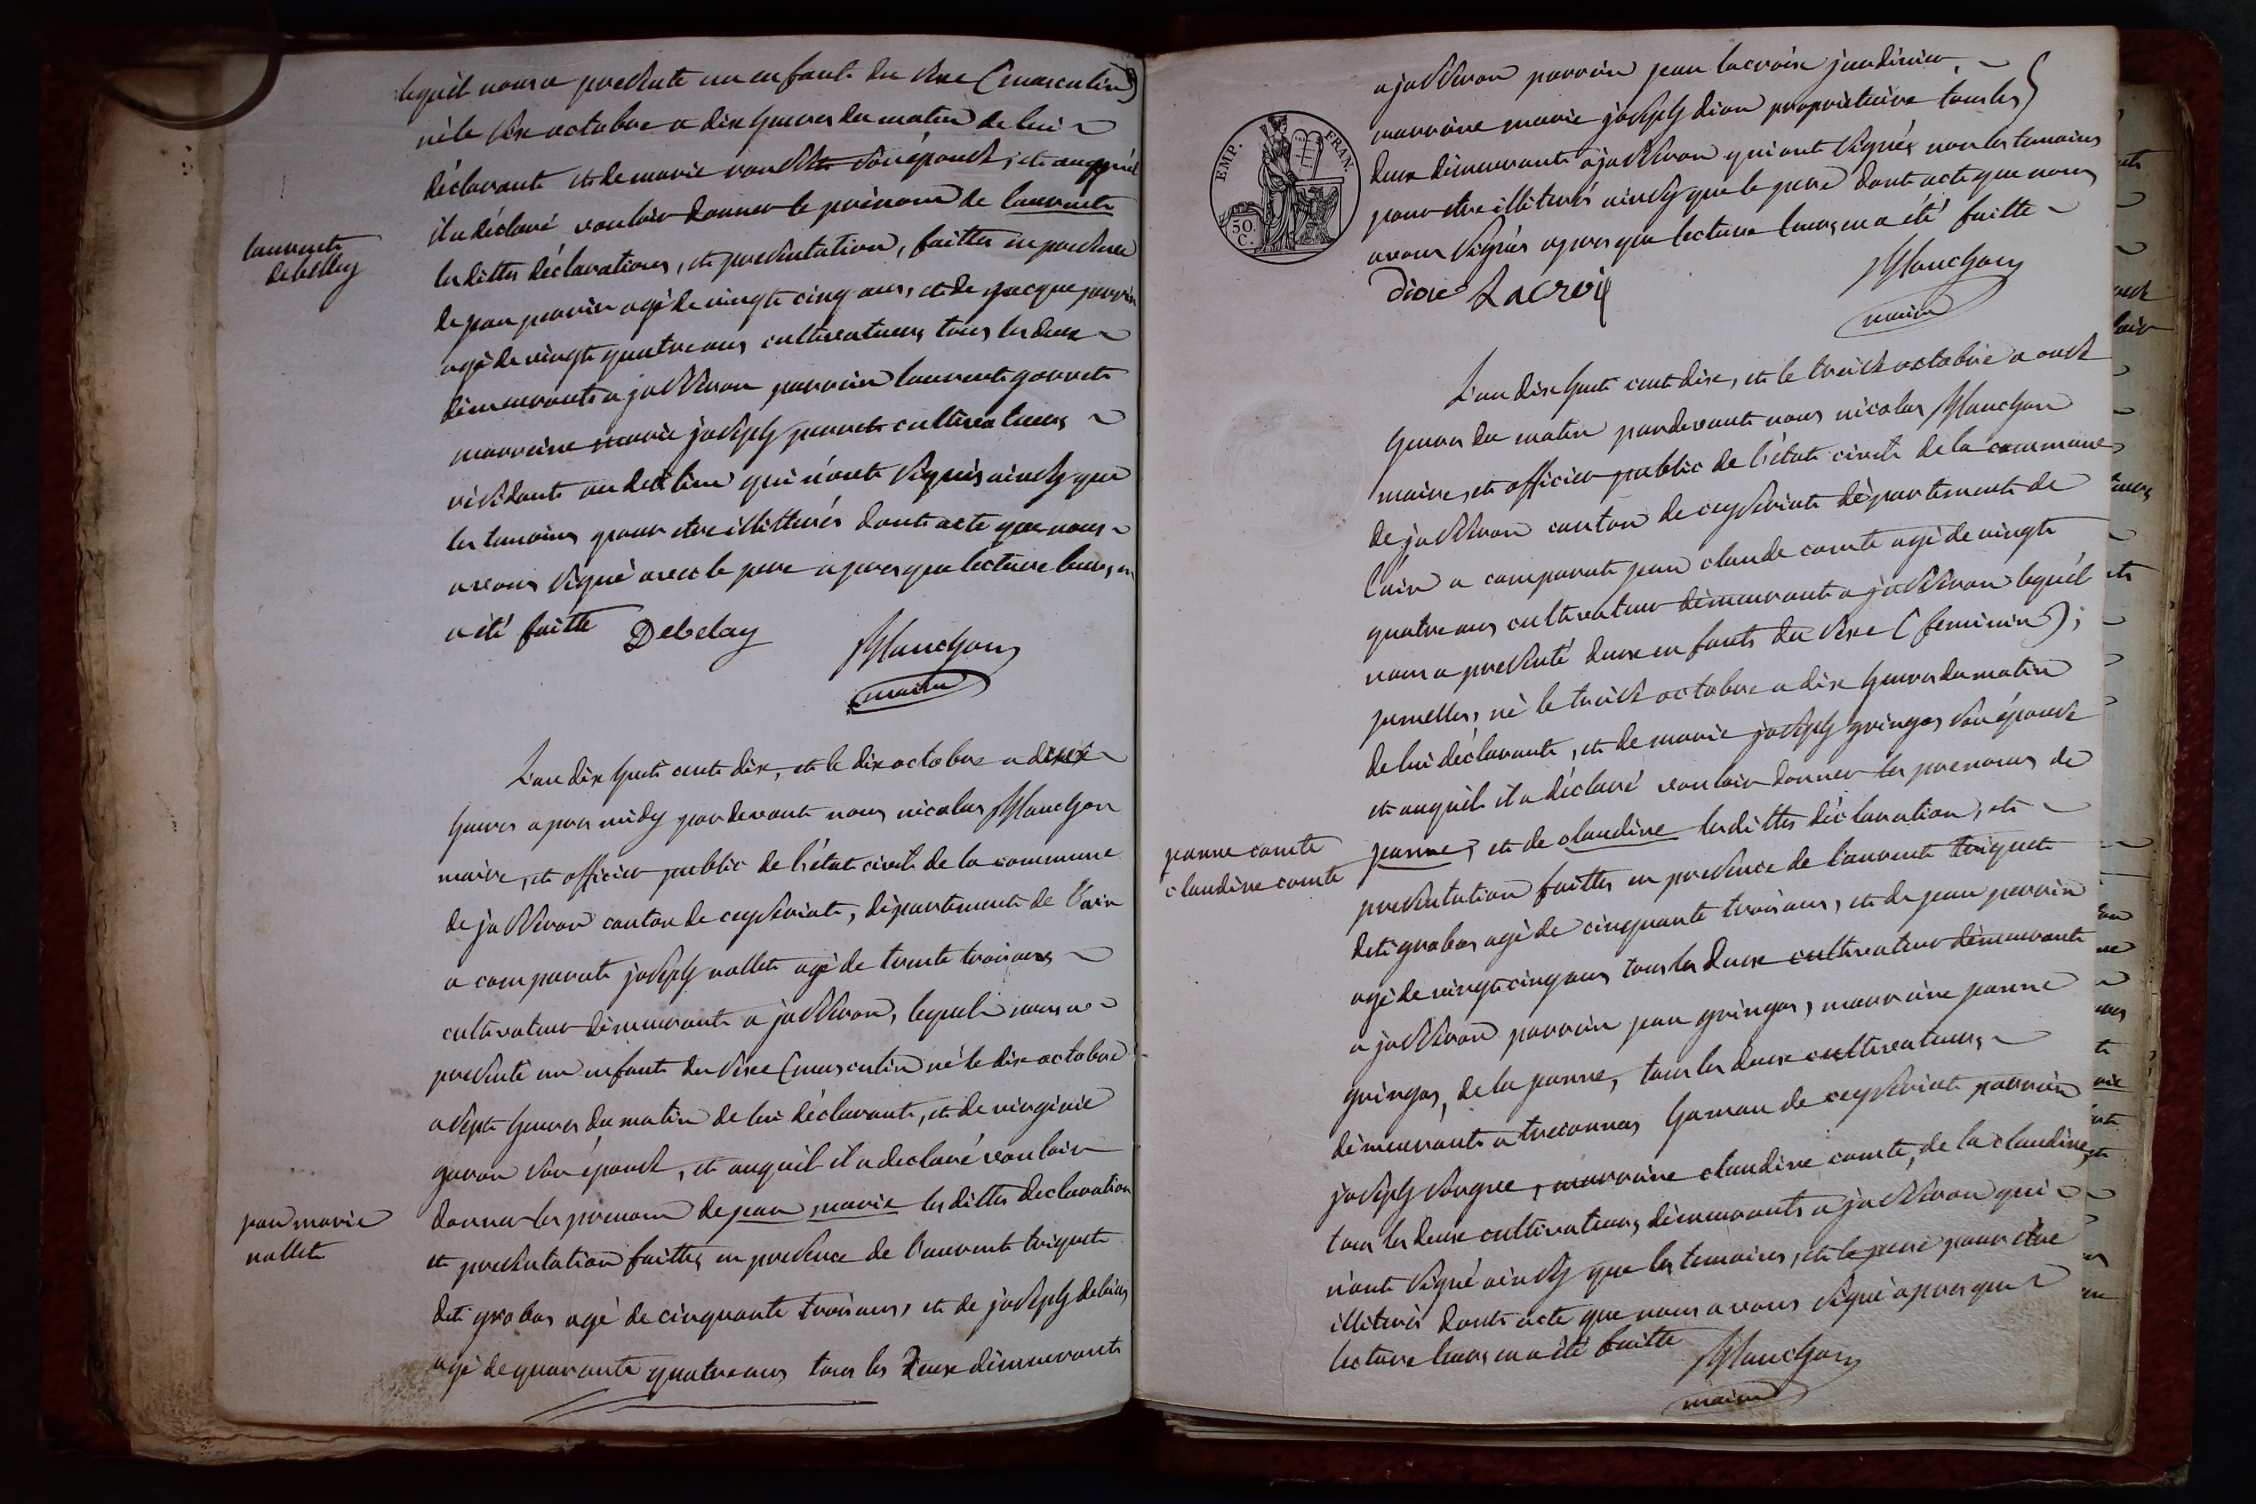 lequél nous a presenté un enfant du sexe (masculin)
né le six octobre a dix heures du matin de lui
déclarant et de marie son épouse, et auquél
il a déclaré vouloir donner le prénom de laurent
les dittes déclarations, et presentation, faittes en presence
de jean perrin agé de vingt cinq ans, et de jacque perrin
agé de vingt quatre ans cultivateurs tous les deux
démeurants a jasseron parrain laurent gorret
marraine marie joseph perret cultivateurs
résidants au dit lieu qui n'ont signés ainsy que
les temoins pour etre illitterés dont acte que nous
avons signé avec le pere apres que lecture leurs en
a été faitte Debelay
Blanchon
maire
laurent
debelley
L'an dix huit cent dix, et le dix octobre a deux
heures apres midy pardevant nous nicolas Blanchon
maire, et officier public de l'état civil de la commune
de jasseron canton de ceyseriat, département de l'ain
a comparut joseph nallet agé de trente trois ans
cultivateur démeurant a jasseron, lequel nous a
presenté un enfant du sexe (masculin né le dix octobre
a sept heures du matin de lui déclarant, et de virginie
son épouse, et auquil il a declaré vouloir
donner les prenom de jean marie les dittes declaration
et presentation faittes en presence de laurent triquet
dit grobas agé de cinquante trois ans, et de joseph
agé de quarante quatre ans tous les deux démeurants
jean marie
nallet
EMP. FRAN.
50.
C.
a jasseron parrain jean lacroix jardinier
marraine marie joseph dion proprietaire tous les
deux démeurants a jasseron qui ont signés non les temoins
pour etre illiterés ainsy que le pere dont acte que nous
avons signés apres que lecture leurs en a été faitte
Lacroix
Blanchon
maire
L'an dix huit cent dix, et le treise octobre a onse
heures du matin pardevant nous nicolas Blanchon
maire, et officier public de l'état civil de la commune
de jasseron canton de ceyseriat département de
l'ain a comparut jean claude comte agé de vingt
quatre ans cultivateur démeurant a jasseron lequél
nous a presenté deux enfants du sexe (feminin);
jumelles, né le treise octobre a dix heures du matin
de lui déclarant, et de marie joseph gringoz son épouse
et auquil il a déclaré vouloir donner les prenoms de
jeanne, et de claudine les dittes déclaration, et
presentation faittes en presence de laurent triquet
dit grobas agé de cinquante trois ans, et de jean perrin
agé de vingt cinq ans tous les deux cultivateur démeurants
a jasseron parrain jean gringoz, marraine jeanne
gringoz, de la jeanne, tous les deux cultivateurs
démeurants a treconnas hameau de ceyseriat parrain
joseph, marraine claudine comte, de la claudine,
tous les deux cultivateurs démeurants a jasseron qui
n'ont signé ainsy que les temoins, et le pere pour etre
illiterés dont acte que nous avons signé apres que
lecture leurs en a été faitte
Blanchon
maire
jeanne comte
claudine comte